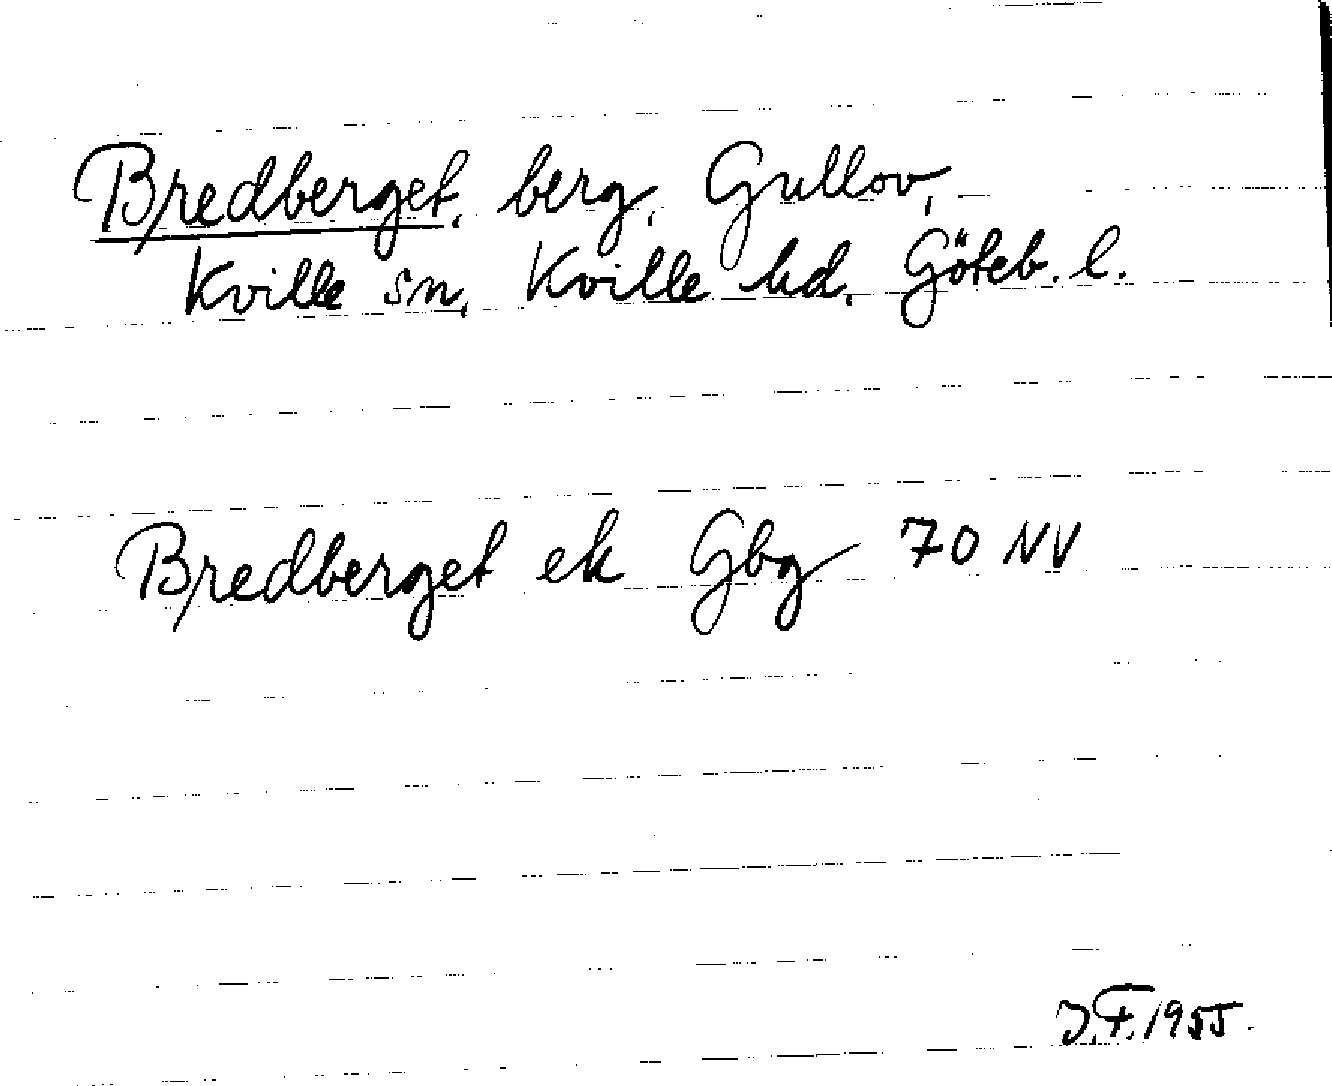 Bredberget, berg, Gullov,
Kville sn, Kville hd, Göteb. l.
Bredberget ek Gbg 70 NV
J.F. 1955.